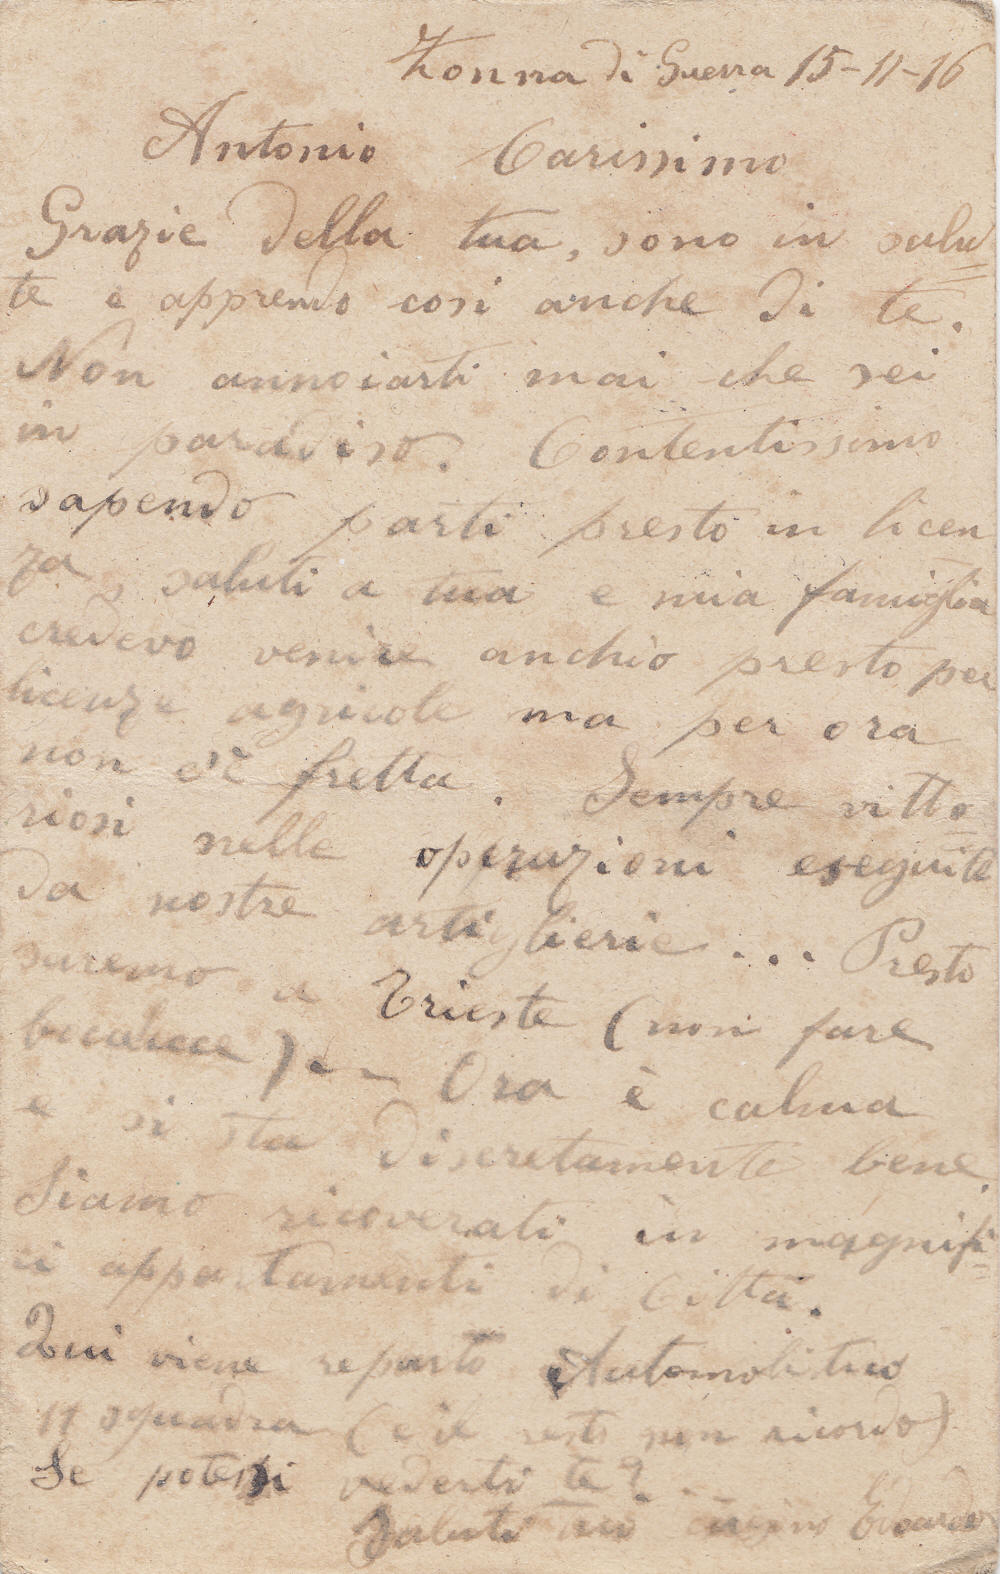 Zonna di Guerra 15-11-16
Antonio Carissimo
Grazie della tua, sono in salu=
te e apprendo così anche di te.
Non annoiarti mai che sei
in paradiso. Contentissimo
sapendo parti presto in licen
za, saluti a tua e mia famiglia
credevo venire anchio presto per
licenze agricole ma per ora
non c'è fretta. Sempre vitto=
riosi nelle operazioni eseguite
da nostre artiglierie... Presto
saremo a Trieste (non fare
boccacce)... Ora è calma
e si sta discretamente bene.
Siamo ricoverati in magnifi=
ci appartamenti di Città.
Qui viene reparto Automobilistico
11 squadra (e il resto non ricordo)
Se potessi vederti te?
Saluti tuo cugino Edoardo